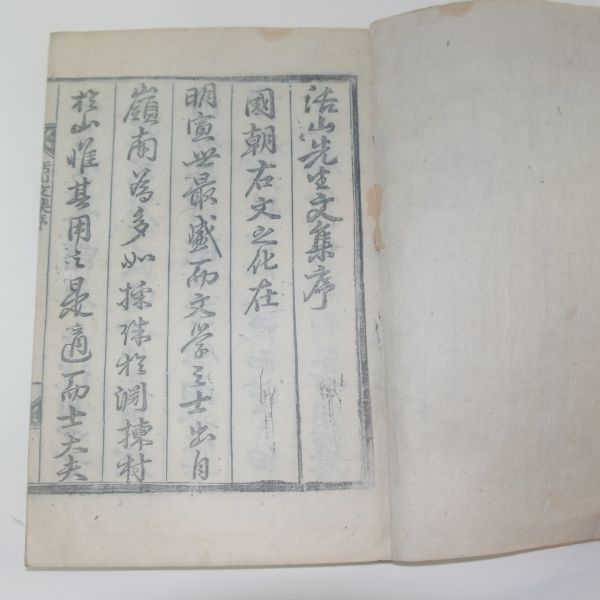 活山先生文集序
國朝右文之化在
明宣世最盛而文學之士出自
嶺南爲多如採珠於淵揀材
於山唯其用之是適而士大夫
活山文集序